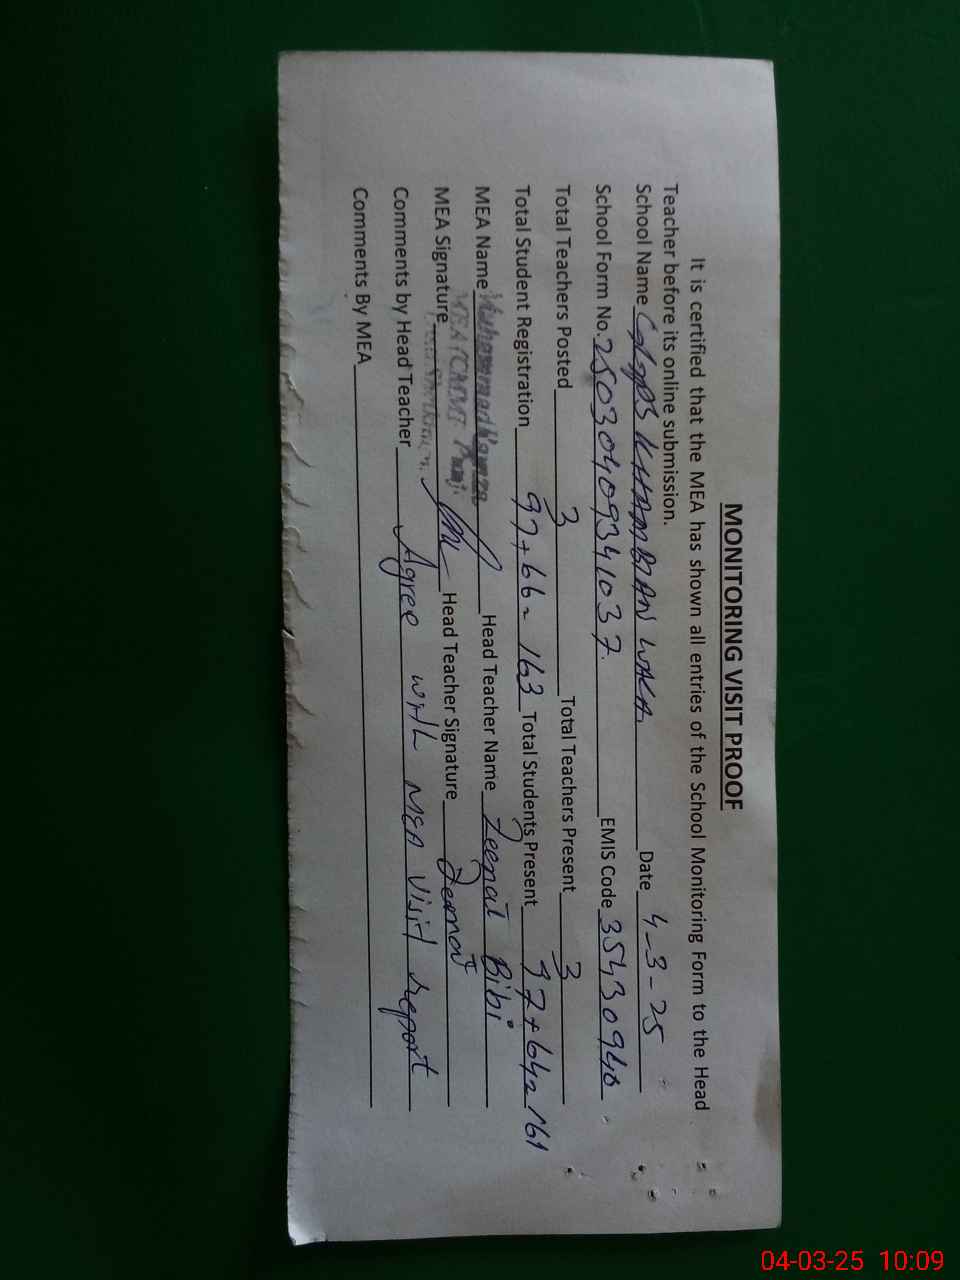 MONITORING VISIT PROOF
It is certified that the MEA has shown all entries of the School Monitoring Form to the Head
Teacher before its online submission.
School Name GGPS KHAMBIAN WALA Date 4-3-25
School Form No. 25030409341037. EMIS Code 35430940
Total Teachers Posted 3 Total Teachers Present 3
Total Student Registration 97+66= 163 Total Students Present 97+64=161
MEA Name Muhammad Hamza Head Teacher Name Zeenat Bibi
MEA Signature Head Teacher Signature Zeenat
MEA
Comments by Head Teacher Agree with MEA visit report
Comments By MEA
04-03-25 10:09